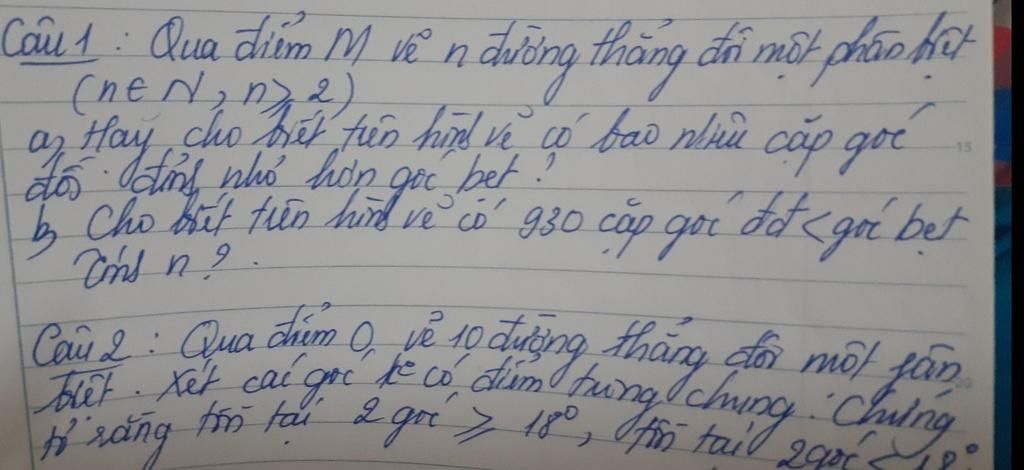 Câu 1 : Qua điểm M vẽ n đường thẳng đôi một phân biệt
(n ∈ N, n ≥ 2)
a, Hãy cho biết trên hình vẽ có bao nhiêu cặp góc
đối đỉnh nhỏ hơn góc bẹt ?
b, Cho biết trên hình vẽ có 930 cặp góc đđ < góc bẹt
Tính n ? .
Câu 2 : Qua điểm O, vẽ 10 đường thẳng đôi một
biệt. Xét các góc có điểm trung chung. Chứng
tỏ rằng tồn tại 2 góc ≥ 18°, tồn tại 2 góc ≤ 18°
15
20